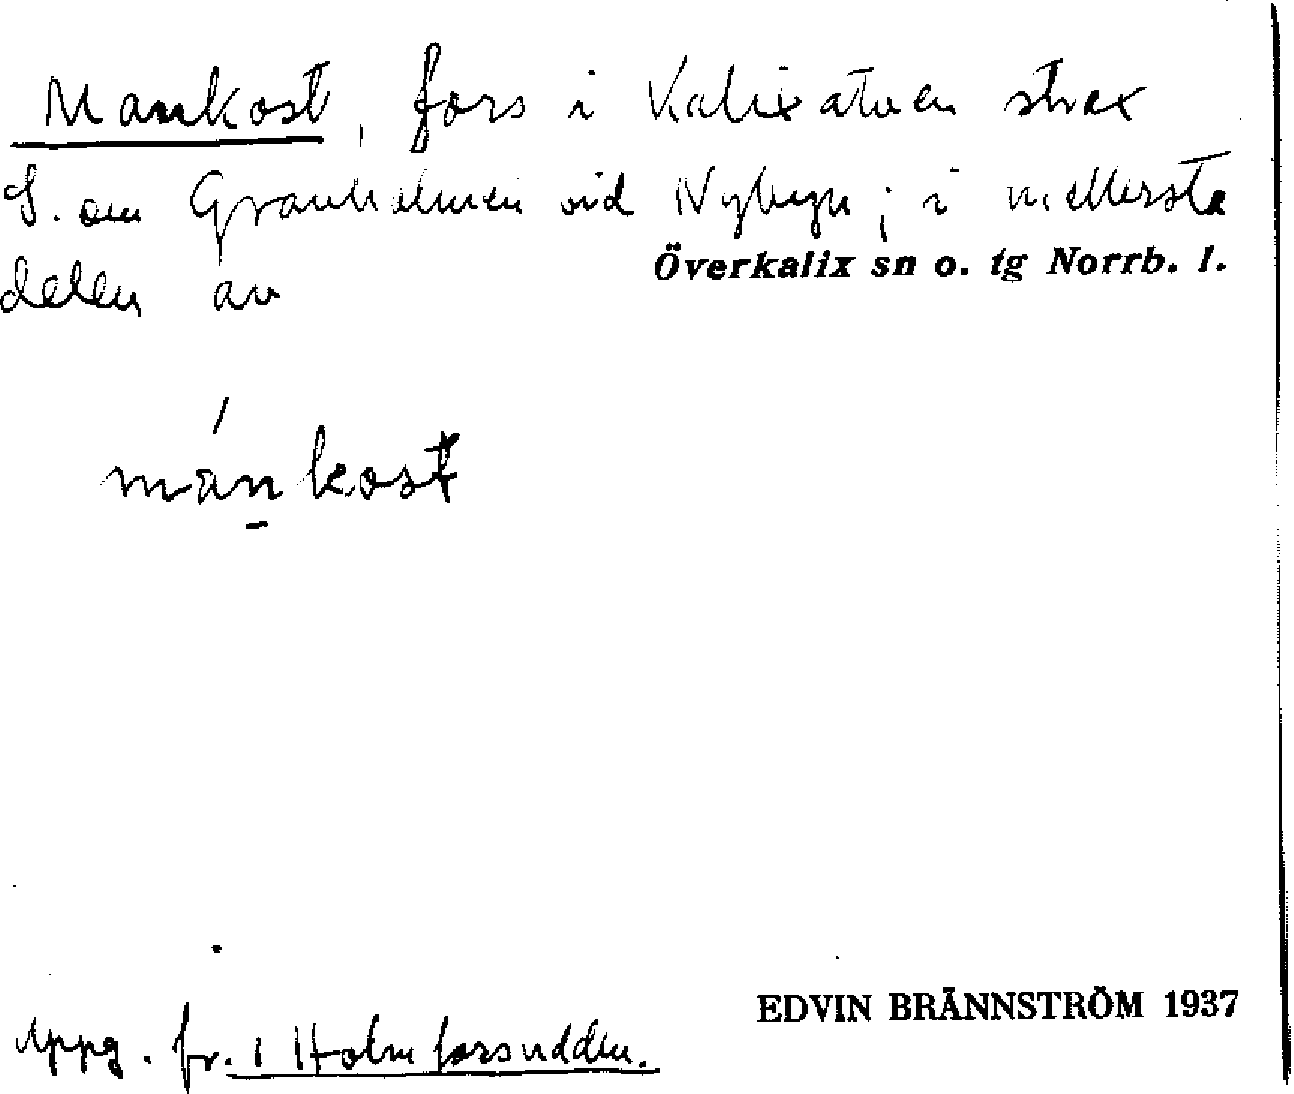 Mankost, fors i Kalixälven strax
S. om Granholmen vid Nybyn; i mellersta
delen av Överkalix sn o. tg Norrb. l.
mánkost
uppg. fr. 1 Holmforsudden.
EDVIN BRÄNNSTRÖM 1937